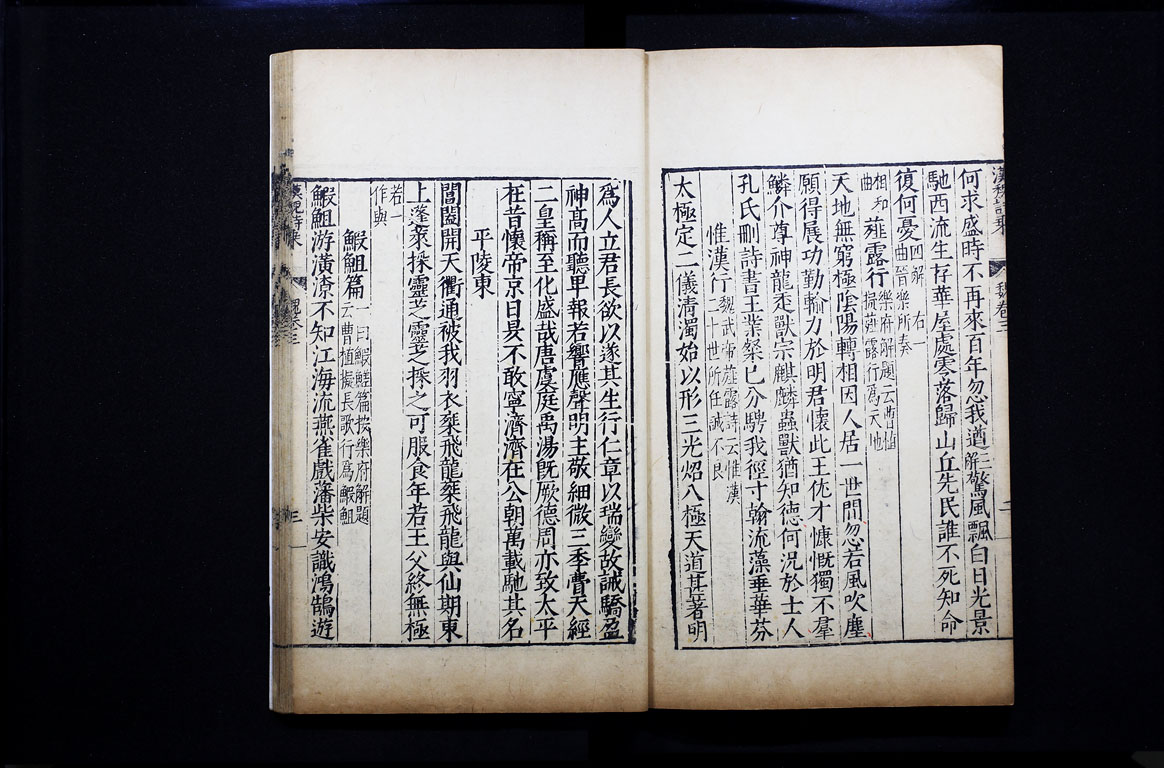 何求盛時不再來百年忽我遒三解驚風飄白日光景
馳西流生存華屋處零落歸山丘先民誰不死知命
復何憂四解 右一曲晉樂所奏
相和曲薤露行樂府解題云曹植擬薤露行爲天地
天地無窮極陰陽轉相因人居一世間忽若風吹塵
願得展功勤輸力於明君懷此王佐才慷慨獨不羣
鱗介尊神龍走獸宗麒麟蟲獸猶知德何況於士人
孔氏刪詩書王業粲已分騁我徑寸翰流藻垂華芬
惟漢行魏武帝薤露詩云惟漢二十世所任誠不良
太極定二儀清濁始以形三光炤八極天道甚著明
爲人立君長欲以遂其生行仁章以瑞變故誡驕盈
神髙而聽卑報若響應聲明主敬細微三季瞢天經
二皇稱至化盛哉唐虞庭禹湯旣厥德周亦致太平
在昔懷帝京日昃不敢寧濟濟在公朝萬載馳其名
平陵東
閶闔開天衢通被我羽衣椉飛龍椉飛龍與仙期東
上蓬萊採靈芝靈芝採之可服食年若王父終無極
若一作與
鰕䱇篇一曰鰕鱔篇按樂府解題云曹植擬長歌行爲鰕䱇
鰕䱇游潢潦不知江海流燕雀戲藩柴安識鴻鵠遊
漢魏詩乗
魏卷三
三